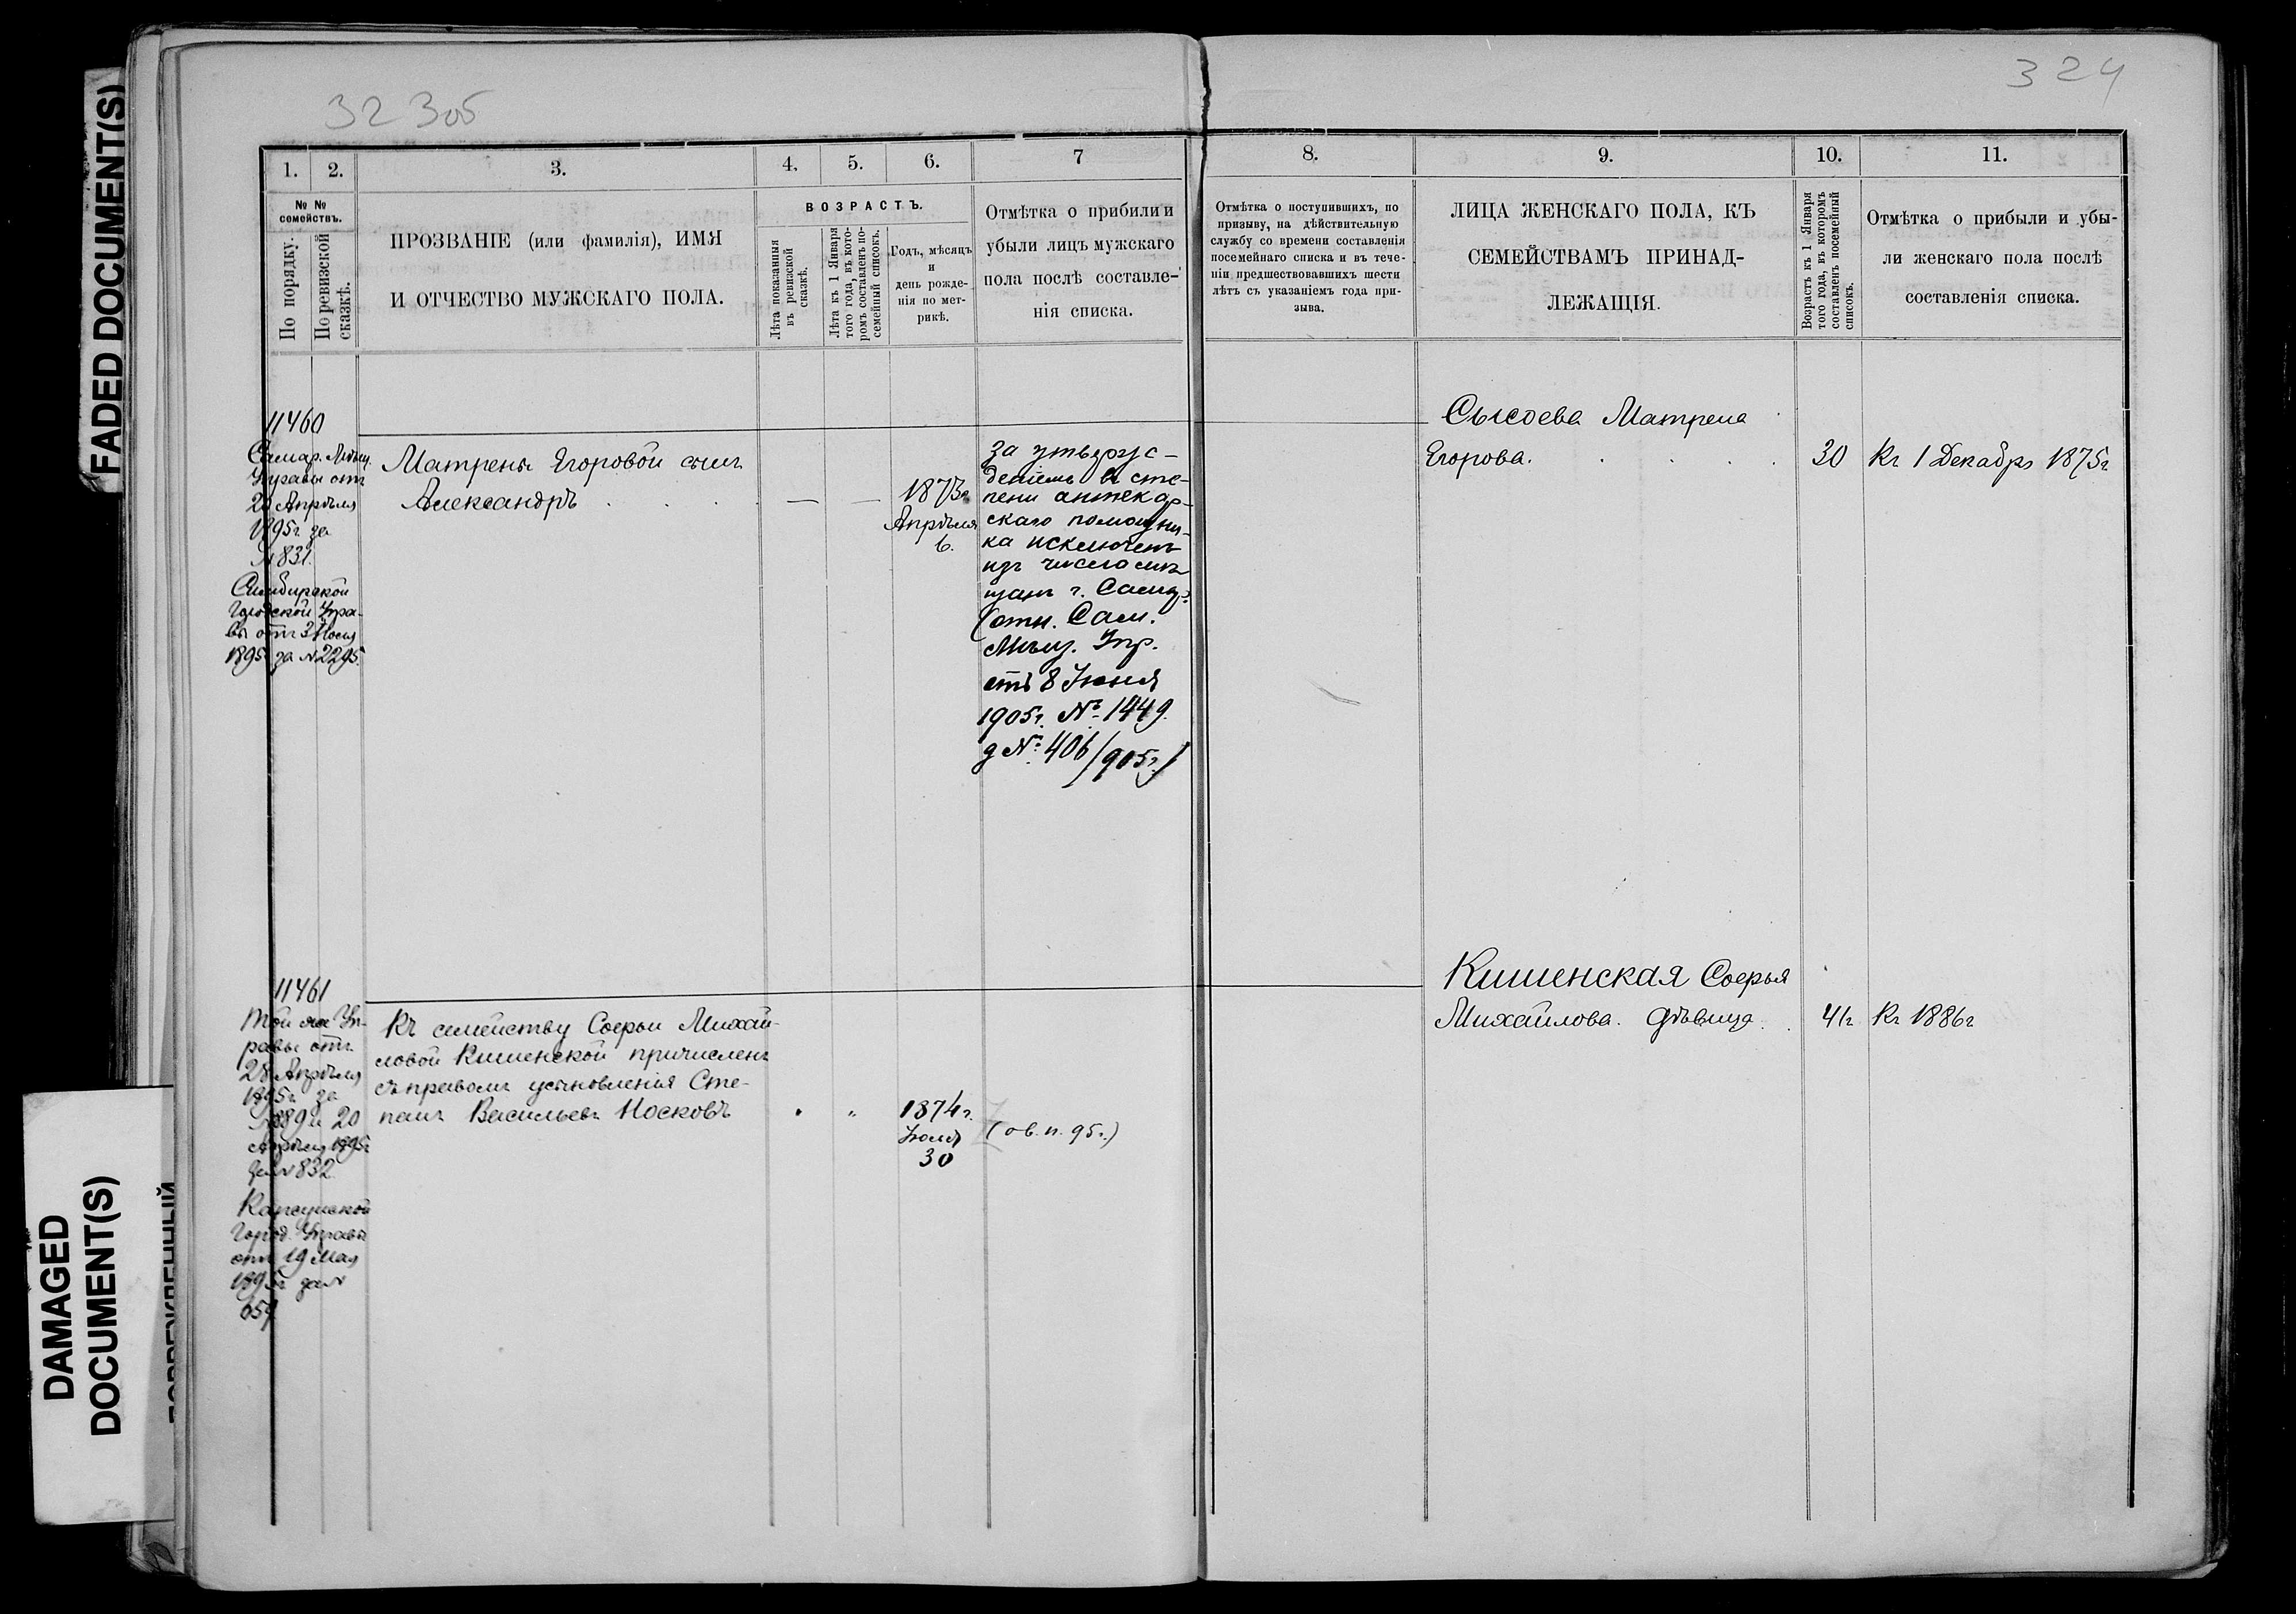 FADED DOCUMENT(S)
DAMAGED
DOCUMENT(S)
32 305
324
1. 2. 3. 4. 5. 6. 7
№ №
семействъ.
По порядку.
По ревизской
сказкѣ.
ПРОЗВАНІЕ (или фамилія), ИМЯ
И ОТЧЕСТВО МУЖСКАГО ПОЛА.
ВОЗРАСТЪ.
Лѣта показанныя
въ ревизской
сказкѣ.
Лѣта къ 1 Января
того года, въ кото-
ромъ составленъ по-
семейный списокъ.
Годъ, мѣсяцъ
и
день рожде-
нія по мет-
рикѣ.
Отмѣтка о прибыли и
убыли лицъ мужскаго
пола послѣ составле-
нія списка.
8. 9. 10. 11.
Отмѣтка о поступившихъ, по
призыву, на дѣйствительную
службу со времени составленія
посемейнаго списка и въ тече-
ніи предшествовавшихъ шести
лѣтъ съ указаніемъ года при-
зыва.
ЛИЦА ЖЕНСКАГО ПОЛА, КЪ
СЕМЕЙСТВАМЪ ПРИНАД-
ЛЕЖАЩІЯ.
Возрастъ къ 1 Января
того года, въ которомъ
составленъ посемейный
списокъ.
Отмѣтка о прибыли и убы-
ли женскаго пола послѣ
составленія списка.
11460
Самар. Мѣщ.
Управы отъ
20 Апрѣля
1895г. за
№ 831.
Симбирской
Городской Упра-
вы отъ
1895 за № 2295.
Матрены Егоровой сынъ
Александръ
1873г.
Апрѣля
6.
За утверж-
деніемъ въ сте-
пени аптекар-
скаго помощни-
ка исключенъ
изъ числа мѣ-
щанъ г. Самар.
(отн. Сам.
Мѣщ. Упр.
отъ 8 Іюня
1905г. № 1449.
д № 406/905г.)
Сысоева Матрена
Егорова.
30
Къ 1 Декабря 1875г
11461
Той же Уп-
равы отъ
28 Апрѣля
1895г. за
№ 889 и 20
Апрѣля 1895г
за № 832
Карсунской
Город. Управы
отъ 19 Мая
1895г за №
657
Къ семейству Софьи Михай-
ловой Кишенской причисленъ
съ правомъ усыновленія Сте-
панъ Васильевъ Носковъ
1874г.
Іюля
30
(ов. п. 95г.)
Кишенская Софья
Михайлова. дѣвица
41г
Къ 1886г